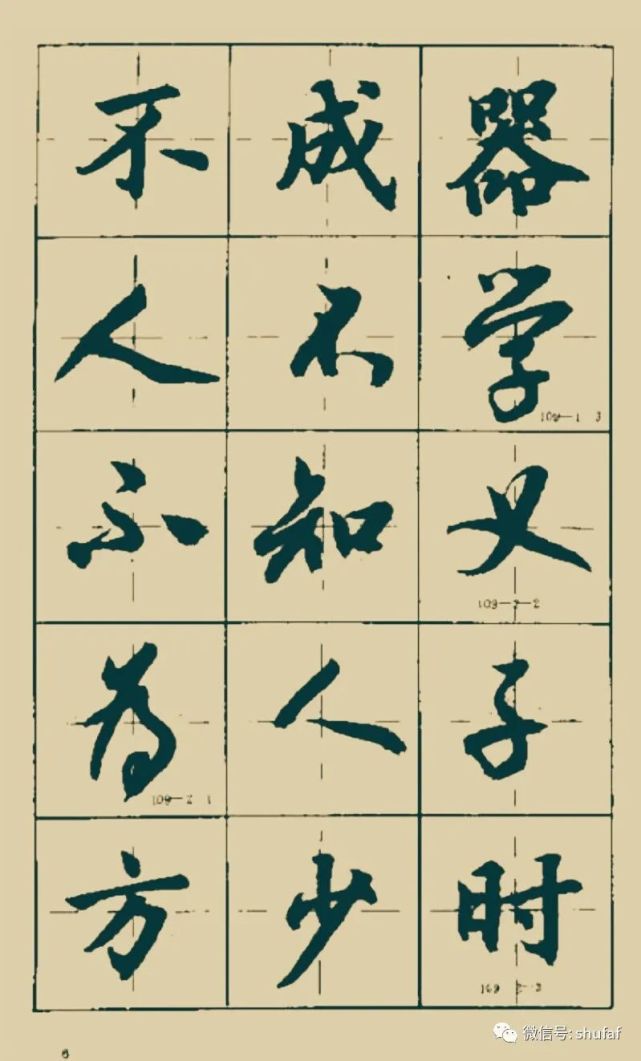 不成器
人不学
109—1 3
不知义
109—2—2
为人子
109—2 1
方少时
109 2—3
微信号: shufaf
6